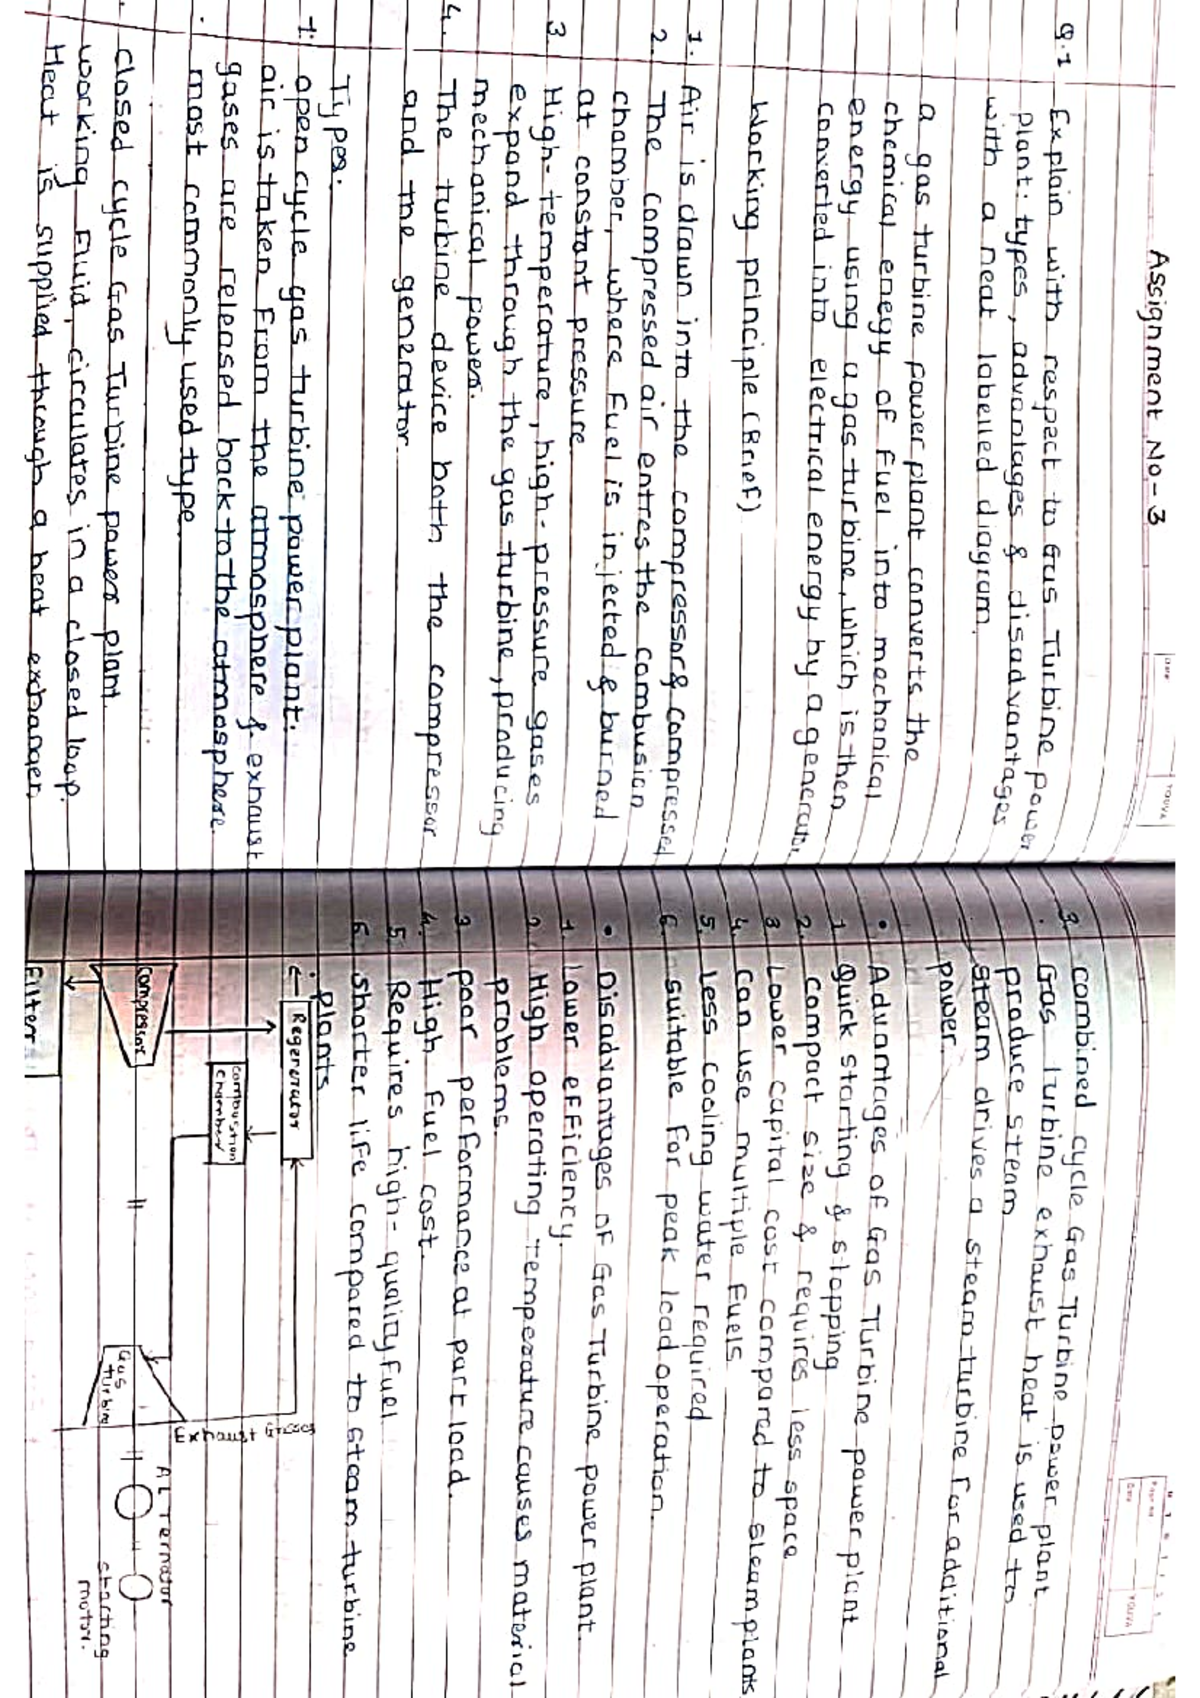 Assignment No-3
Date
YOUVA
Q.1 Explain with respect to Gas Turbine power
plant: types, advantages & disadvantages
with a neat labelled diagram.
a gas turbine power plant converts the
chemical enegy of fuel into mechanical
energy using a gas turbine, which is then
converted into electrical energy by a generator.
Working principle (Brief)
1. Air is drawn into the compressor & compressed
2. The compressed air entres the combusion
chamber, where fuel is injected & burned
at constant pressure
3. High-temperature, high-pressure gases
expand through the gas turbine, producing
mechanical power.
4. The turbine device both the compressor
and the generator.
Types.
1. open cycle gas turbine power plant:
air is taken from the atmosphere & exhaust
gases are released back to the atmosphere.
. most commonly used type.
. closed cycle Gas Turbine power plant.
working fluid, circulates in a closed loop.
Heat is supplied through a heat exchanger.
Page No
Date
YOUVA
3. combined cycle Gas Turbine power plant
. Gas Turbine exhaust heat is used to
produce steam
. steam drives a steam turbine for additional
power.
• Advantages of Gas Turbine power plant
1. Quick starting & stopping
2. compact size & requires less space
3. Lower capital cost compared to steam plants
4. can use multiple fuels
5. Less cooling water required
6. suitable for peak load operation.
• Disadvantages of Gas Turbine power plant.
1. lower efficiency.
2. High operating temperature causes material
problems.
3. poor performance at part load.
4. High fuel cost.
5. Requires high-quality fuel
6. shorter life compared to steam turbine
plants
Regenerator
combustion
chamber
Exhaust Gases
compressor
Gas
turbine
ALTernator
starting
motor.
Filter